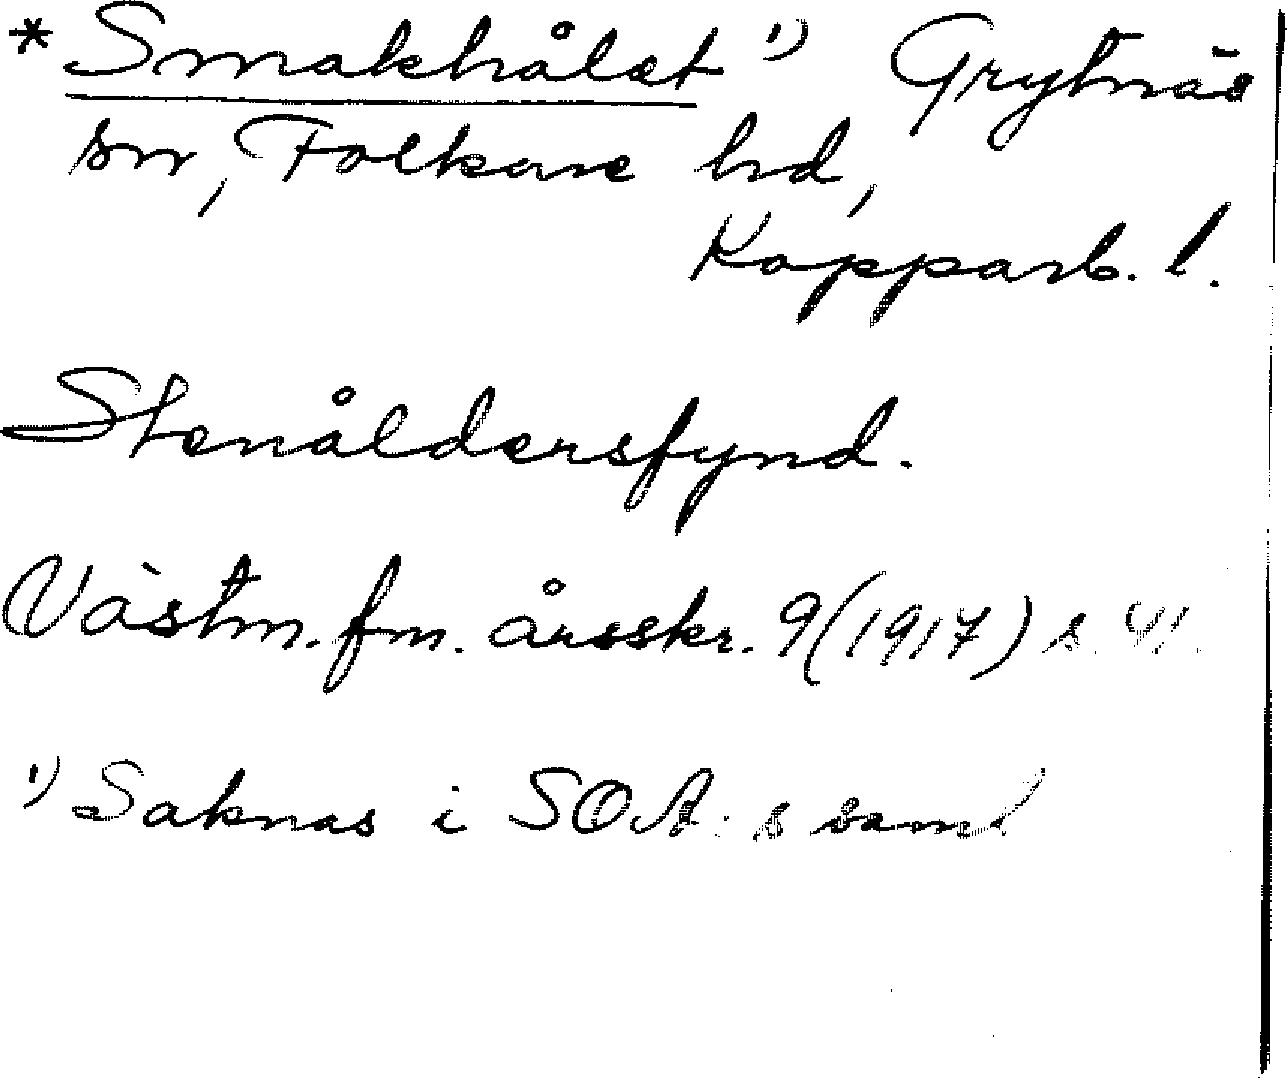 *Smakhålet ¹) Grytnäs
sn, Folkare hd,
Kopparb. l.
Stenåldersfynd.
Västm. fm. årsskr. 9 (1917) s. 41.
¹) Saknas i SOA:s saml